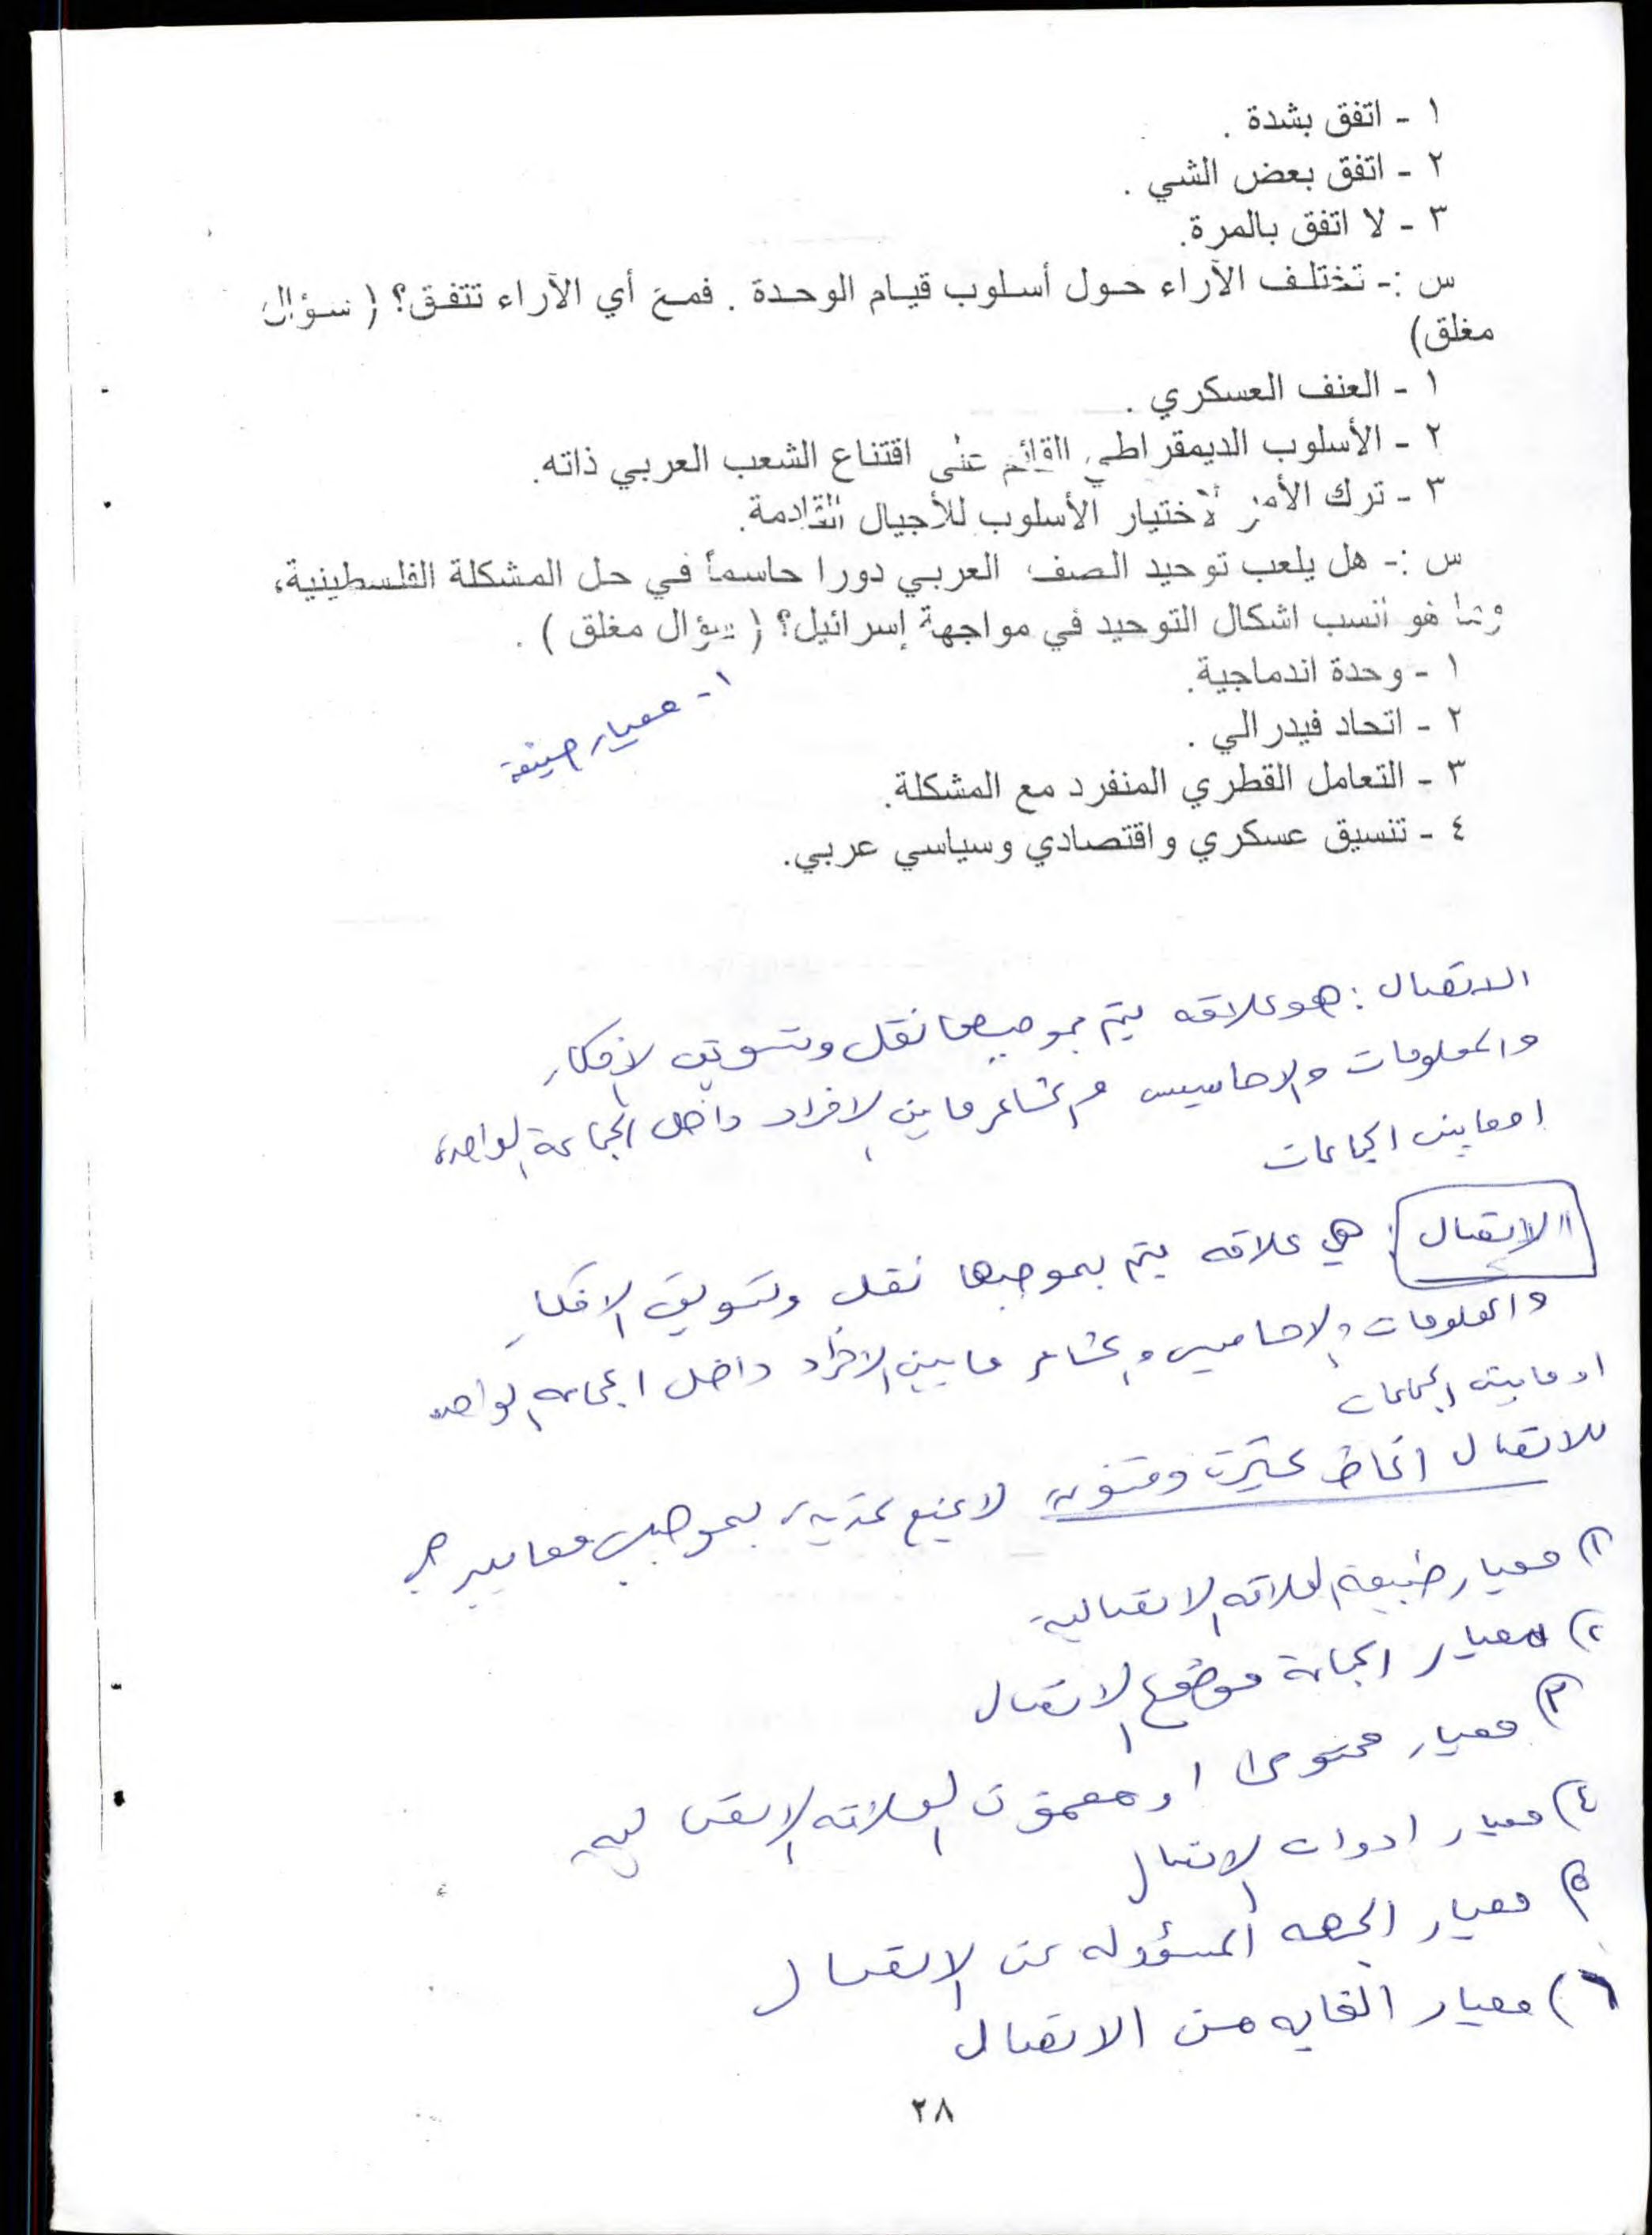 ١ - اتفق بشدة .
٢ - اتفق بعض الشي .
٣ - لا اتفق بالمرة.
س :- تختلف الآراء حول أسلوب قيام الوحدة . فمع أي الآراء تتفق؟ ( سؤال
مغلق)
١ - العنف العسكري .
٢ - الأسلوب الديمقراطي القائم على اقتناع الشعب العربي ذاته.
٣ - ترك الأمر لاختيار الأسلوب للأجيال القادمة.
س :- هل يلعب توحيد الصف العربي دورا حاسماً في حل المشكلة الفلسطينية،
وما هو أنسب اشكال التوحيد في مواجهة إسرائيل؟ ( سؤال مغلق ) .
١ - وحدة اندماجية.
١- معيار
٢ - اتحاد فيدرالي .
٣ - التعامل القطري المنفرد مع المشكلة.
٤ - تنسيق عسكري واقتصادي وسياسي عربي.
الاتصال : هو علاقه يتم بموجبها نقل وتسويق الافكار
والمعلومات والاحاسيس والمشاعر مابين الافراد داخل الجماعة الواحدة
اومابين الجماعات
الاتصال : هي علاقه يتم بموجبها نقل وتسويق الافكار
والمعلومات والاحاسيس والمشاعر مابين الافراد داخل الجماعه الواحده
او مابين الجماعات
للاتصال انماط كثيرة ومتنوعه بموجب معايير
١) معيار طبيعة العلاقه الاتصالية
٢) معيار الجماعة موضوع الاتصال
٣) معيار محتوى او مضمون العلاقه الاتصاليه
٤) معيار ادوات الاتصال
٥) معيار الجهه المسؤوله عن الاتصال
٦) معيار الغايه من الاتصال
٢٨